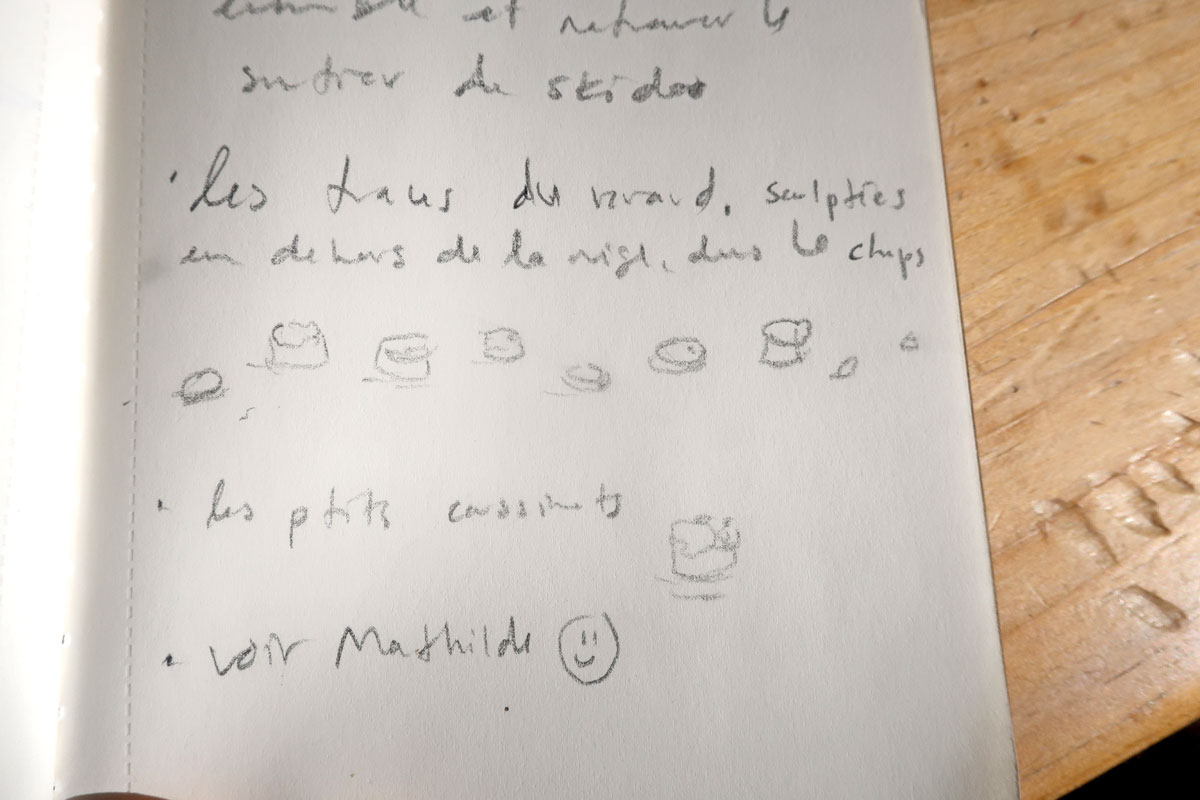 et retrouver le
sentier de skidoo
· les traces du renard, sculptées
en dehors de la neige, dans le champs
· les ptits coussinets
· voir Mathilde